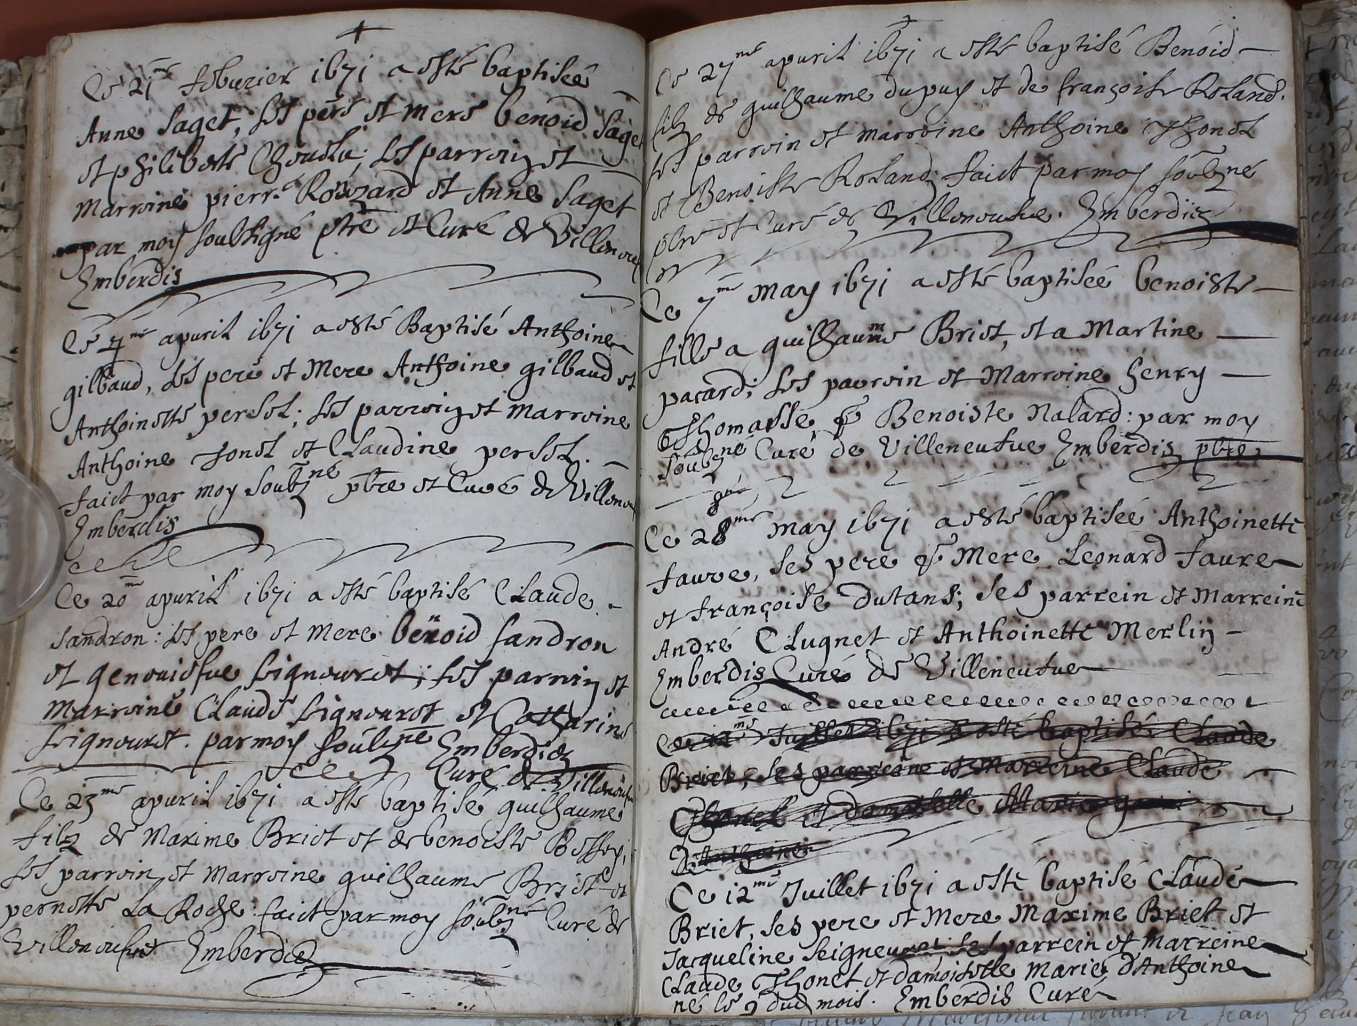 Ce 21me feburier 1671 a esté baptiseé
Anne Saget, ses pere et mere benoid Saget
et philiberte Chevolu; ses parroin et
Marroine pierre Rouzard et Anne Saget
par moy soubsigné pbre et Curé de Villeneu
Emberdis
Ce 4me apuril 1671 a esté Baptisé Anthoine
gilbaud, ses pere et Mere Anthoine gilbaud et
Anthoinette persol; ses parroin et marroine
Anthoine Thonel et Claudine persol.
faict par moy soubzne pbre et Curé de Villeneu
Emberdis
Ce 20m apuril 1671 a esté baptisé Claude
Sandron: ses pere et mere benoid Sandron
et geneviefve Seignouret; ses parroin et
Marroine Claude Seignouret et Catharine
Seignouret. par moy soubzne Emberdis
Curé de Villeneufve
Ce 23me apuril 1671 a esté baptisé guilhaume
filz de Maxime Briet et de benoiste Bossey,
ses parroin et Marroine guilhaume Briet et
pernette La Roche: faict par moy soubzné Curé de
Villeneufve Emberdis
Ce 27me apuril 1671 a esté baptisé Benoid
filz de guilhaume dupuy et de françoise Roland.
ses parroin et marroine Anthoine Thonel
et Benoiste Roland faict par moy soubzné
pbre et Curé de Villeneufve. Emberdis
Ce 7me May 1671 a esté baptiseé benoiste
fille a guilhaume Briet, et a Martine
pacard; ses parroin et Marroine henry
Thomassé, & Benoiste Nalard: par moy
soubzné Curé de Villeneufve Emberdis pbre
Ce 28me May 1671 a esté baptiseé Anthoinette
faure, ses pere & Mere Leonard faure
et françoise dutans; ses parrein et Marreine
André Clugnet et Anthoinette Merlin
Emberdis Curé de Villeneufve
Ce 12me Juillet 1671 a esté baptisé Claude
Briet, ses parreine et Marreine Claude
Thonel et damoiselle Marie
D'Anthoine
Ce 12me Juillet 1671 a esté baptisé Claude
Briet, ses pere et Mere Maxime Briet et
Jacqueline Seigneuret, ses parrein et Marreine
Claude Thonel et damoiselle Marie d'Anthoine
né le 9 dud mois. Emberdis Curé